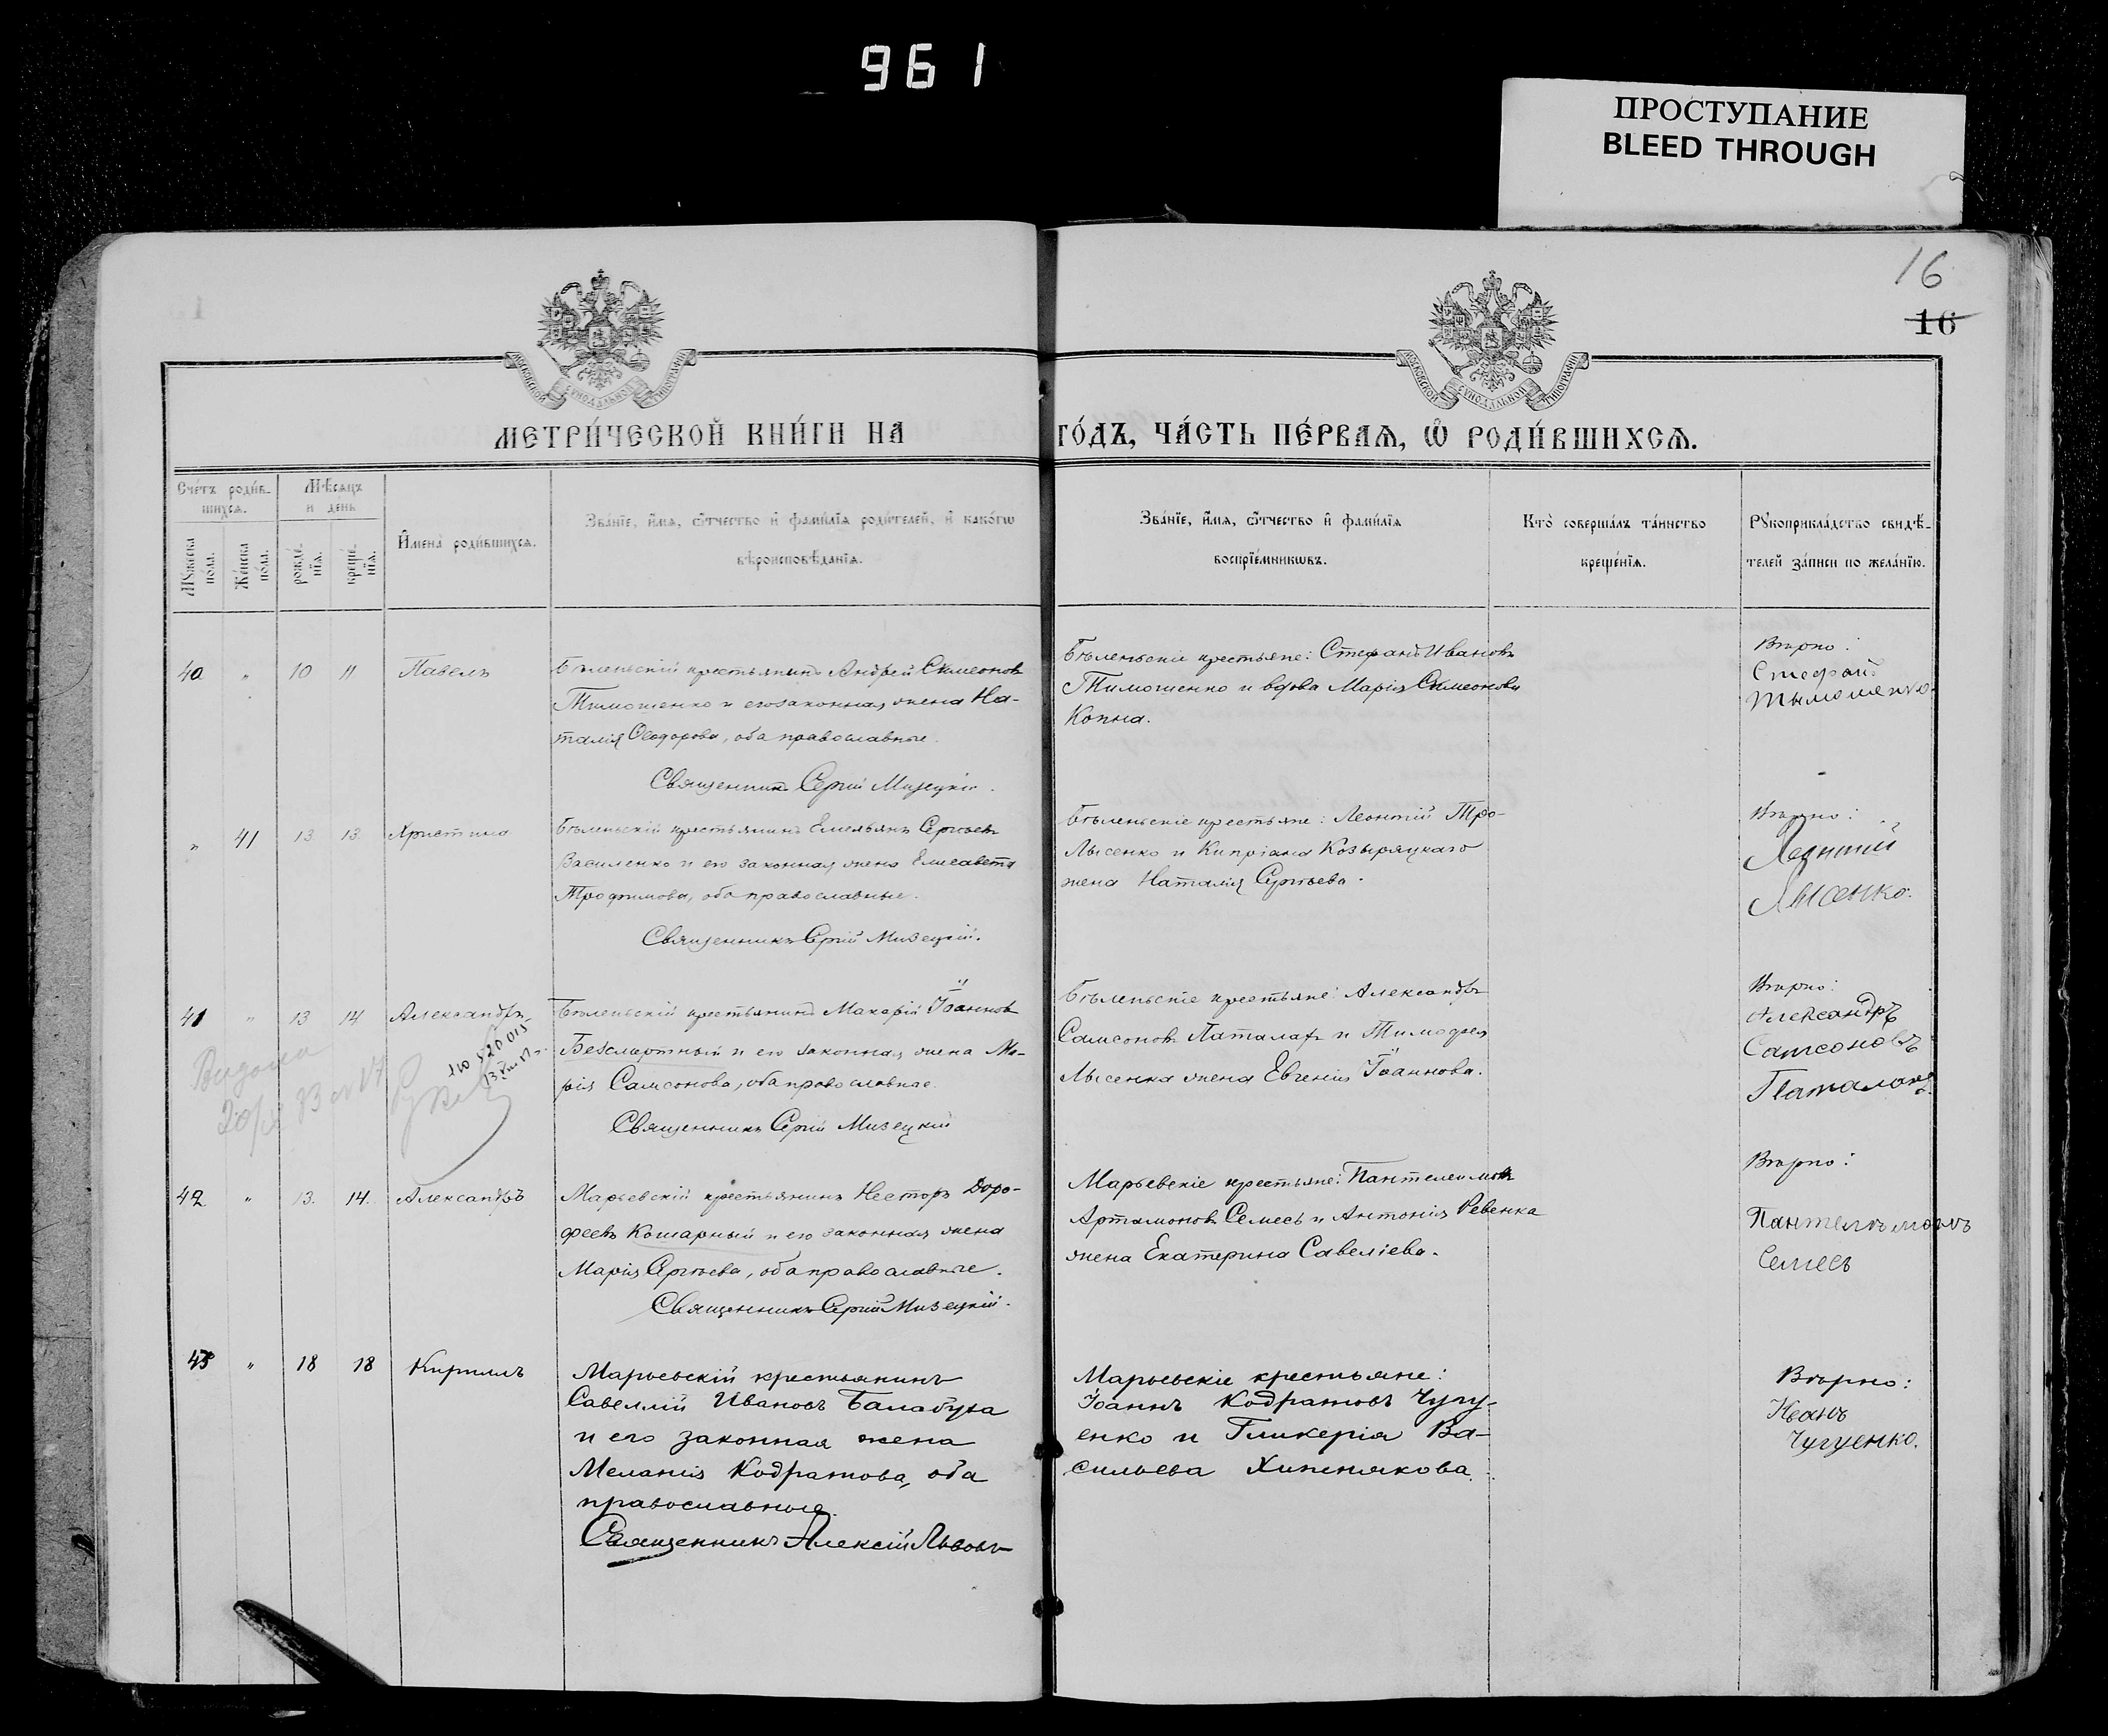 961
ПРОСТУПАНИЕ
BLEED THROUGH
16
16
МОСКОВСКОЙ СУНОДАЛЬНОЙ ТИПОГРАФІИ
МОСКОВСКОЙ СУНОДАЛЬНОЙ ТИПОГРАФІИ
МЕТРИ́ЧЕСКОЙ КНИ́ГИ НА ГО́ДЪ, ЧА́СТЬ ПЕ́РВАѦ, Ѿ РОДИ́ВШИХСѦ.
Сче́тъ роди́в-
шихсѧ.
Мѣ́сѧцъ
и день
Мꙋжеска по́ла.
Же́нска по́ла.
рожде́-нїѧ.
креще́-нїѧ.
И҆мена̀ роди́вшихсѧ.
Зва́нїе, и҆́мѧ, ѻ҆́тчество и҆ фами́лїѧ роди́телей, и҆ како́гѡ
вѣроисповѣ́данїѧ.
Зва́нїе, и҆́мѧ, ѻ҆́тчество и҆ фами́лїѧ
воспрїе́мникѡвъ.
Кто̀ соверша́лъ та́инство
креще́нїѧ.
Рꙋкоприкла́дство свидѣ́-
телей за́писи по жела́нїю.
40 " 10 11 Павелъ
Бѣленьскій крестьянинъ Андрей Симеоновъ
Тимошенко и его законная жена На-
талія Ѳеодорова, оба православные.
Священникъ Сергій Мизецкій.
Бѣленьскіе крестьяне: Стефанъ Ивановъ
Тимошенко и вдова Марія Симеонова
Копна.
Вѣрно:
Стефан
Тымошенко.
" 41 13 13 Христина
Бѣленьскій крестьянинъ Емельянъ Сергѣевъ
Василенко и его законная жена Елисавета
Трофимова, оба православные.
Священникъ Сергій Мизецкій.
Бѣленьскіе крестьяне: Леонтій Тро-
Лысенко и Кипріана Козыряцкаго
жена Наталія Сергѣева.
Вѣрно:
Леонтий
Лысенко.
41 " 13 14 Александръ
Бѣленьскій крестьянинъ Макарій Іоанновъ
Безсмертный и его законная жена Ма-
рія Самсонова, оба православные.
Священникъ Сергій Мизецкій
Бѣленьскіе крестьяне: Александръ
Самсоновъ Паталахъ и Тимофея
Лысенка жена Евгенія Іоаннова.
Вѣрно:
Александръ
Самсоновъ
Паталахъ
42 " 13. 14. Александръ
Марьевскій крестьянинъ Несторъ Доро-
феевъ Кошарный и его законная жена
Марія Сергѣева, оба православные.
Священникъ Сергій Мизецкій.
Марьевскіе крестьяне: Пантелеимонъ
Артамоновъ Семесь и Антонія Ревенка
жена Екатерина Савеліева.
Вѣрно:
Пантелѣмонъ
Семесь
43 " 18 18 Кириллъ
Марьевскій крестьянинъ
Савеллій Ивановъ Балабуха
и его законная жена
Меланія Кодратова, оба
православные.
Священникъ Алексій Львовъ
Марьевскіе крестьяне:
Іоаннъ Кодратовъ Чугу-
енко и Гликерія Ва-
сильева Хипенякова.
Вѣрно:
Иванъ
Чугуенко.